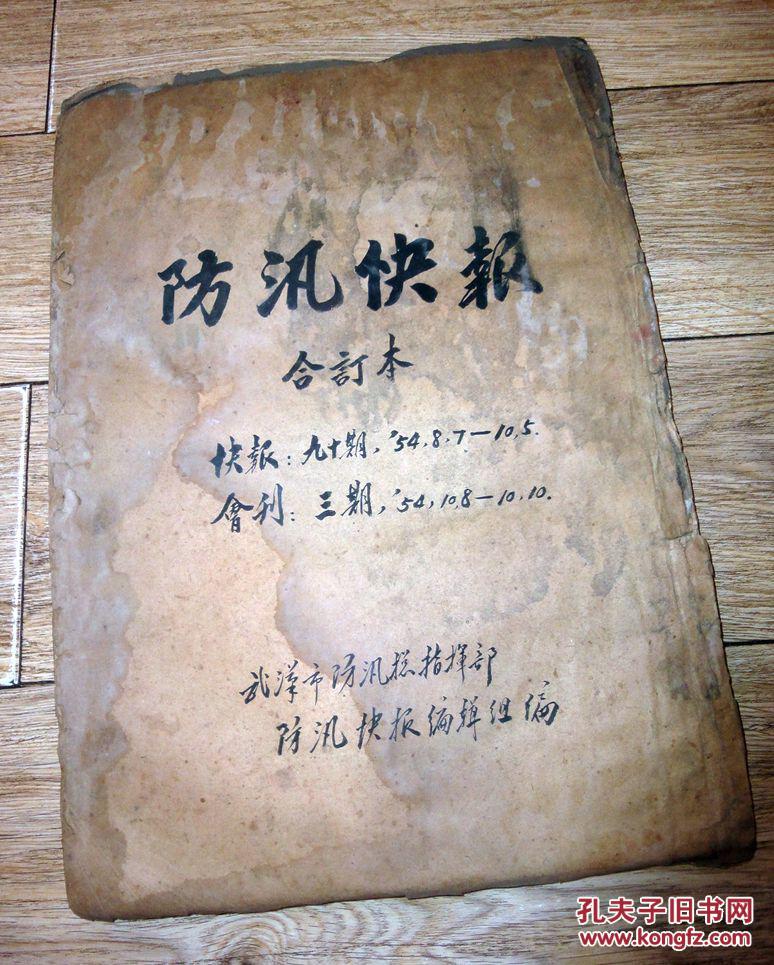 防汛快報
合訂本
快報：九十期，'54,8,7—10,5.
會刊：三期，'54,10,8—10,10.
武漢市防汛總指揮部
防汛快报编辑组编
孔夫子旧书网
www.kongfz.com